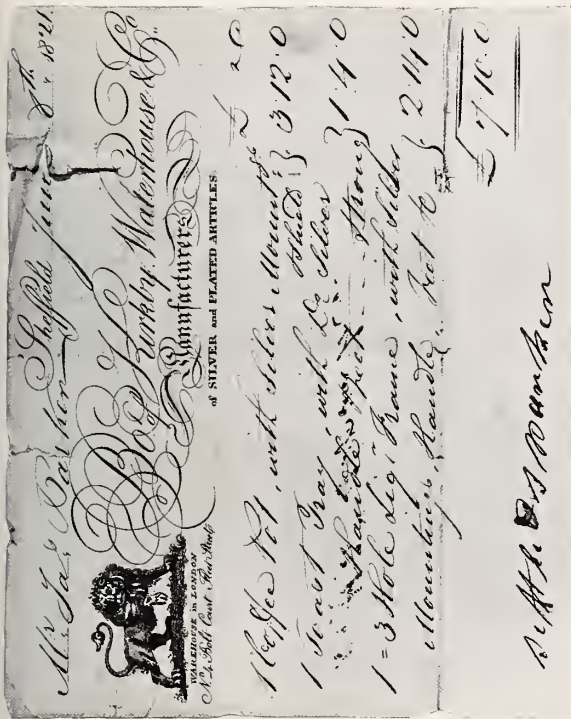 Sheffield June 8th 1821
Mr Jas Barker
Boy Kirkby, Waterhouse & Co.
Manufacturers
of SILVER and PLATED ARTICLES
WAREHOUSE in LONDON
No 4 Bolt Court, Fleet Street
£ s D
1 Coffee Pot, with Silver Mountgs
Shield } 3.12.0
1 Toast Tray, with Do Silver
Handle & feet - - - Strong } 1.4.0
1 = 3 Hole Frame, with Silver
Mountings, Handle, Feet &c } 2.14.0
£ 7.10.0